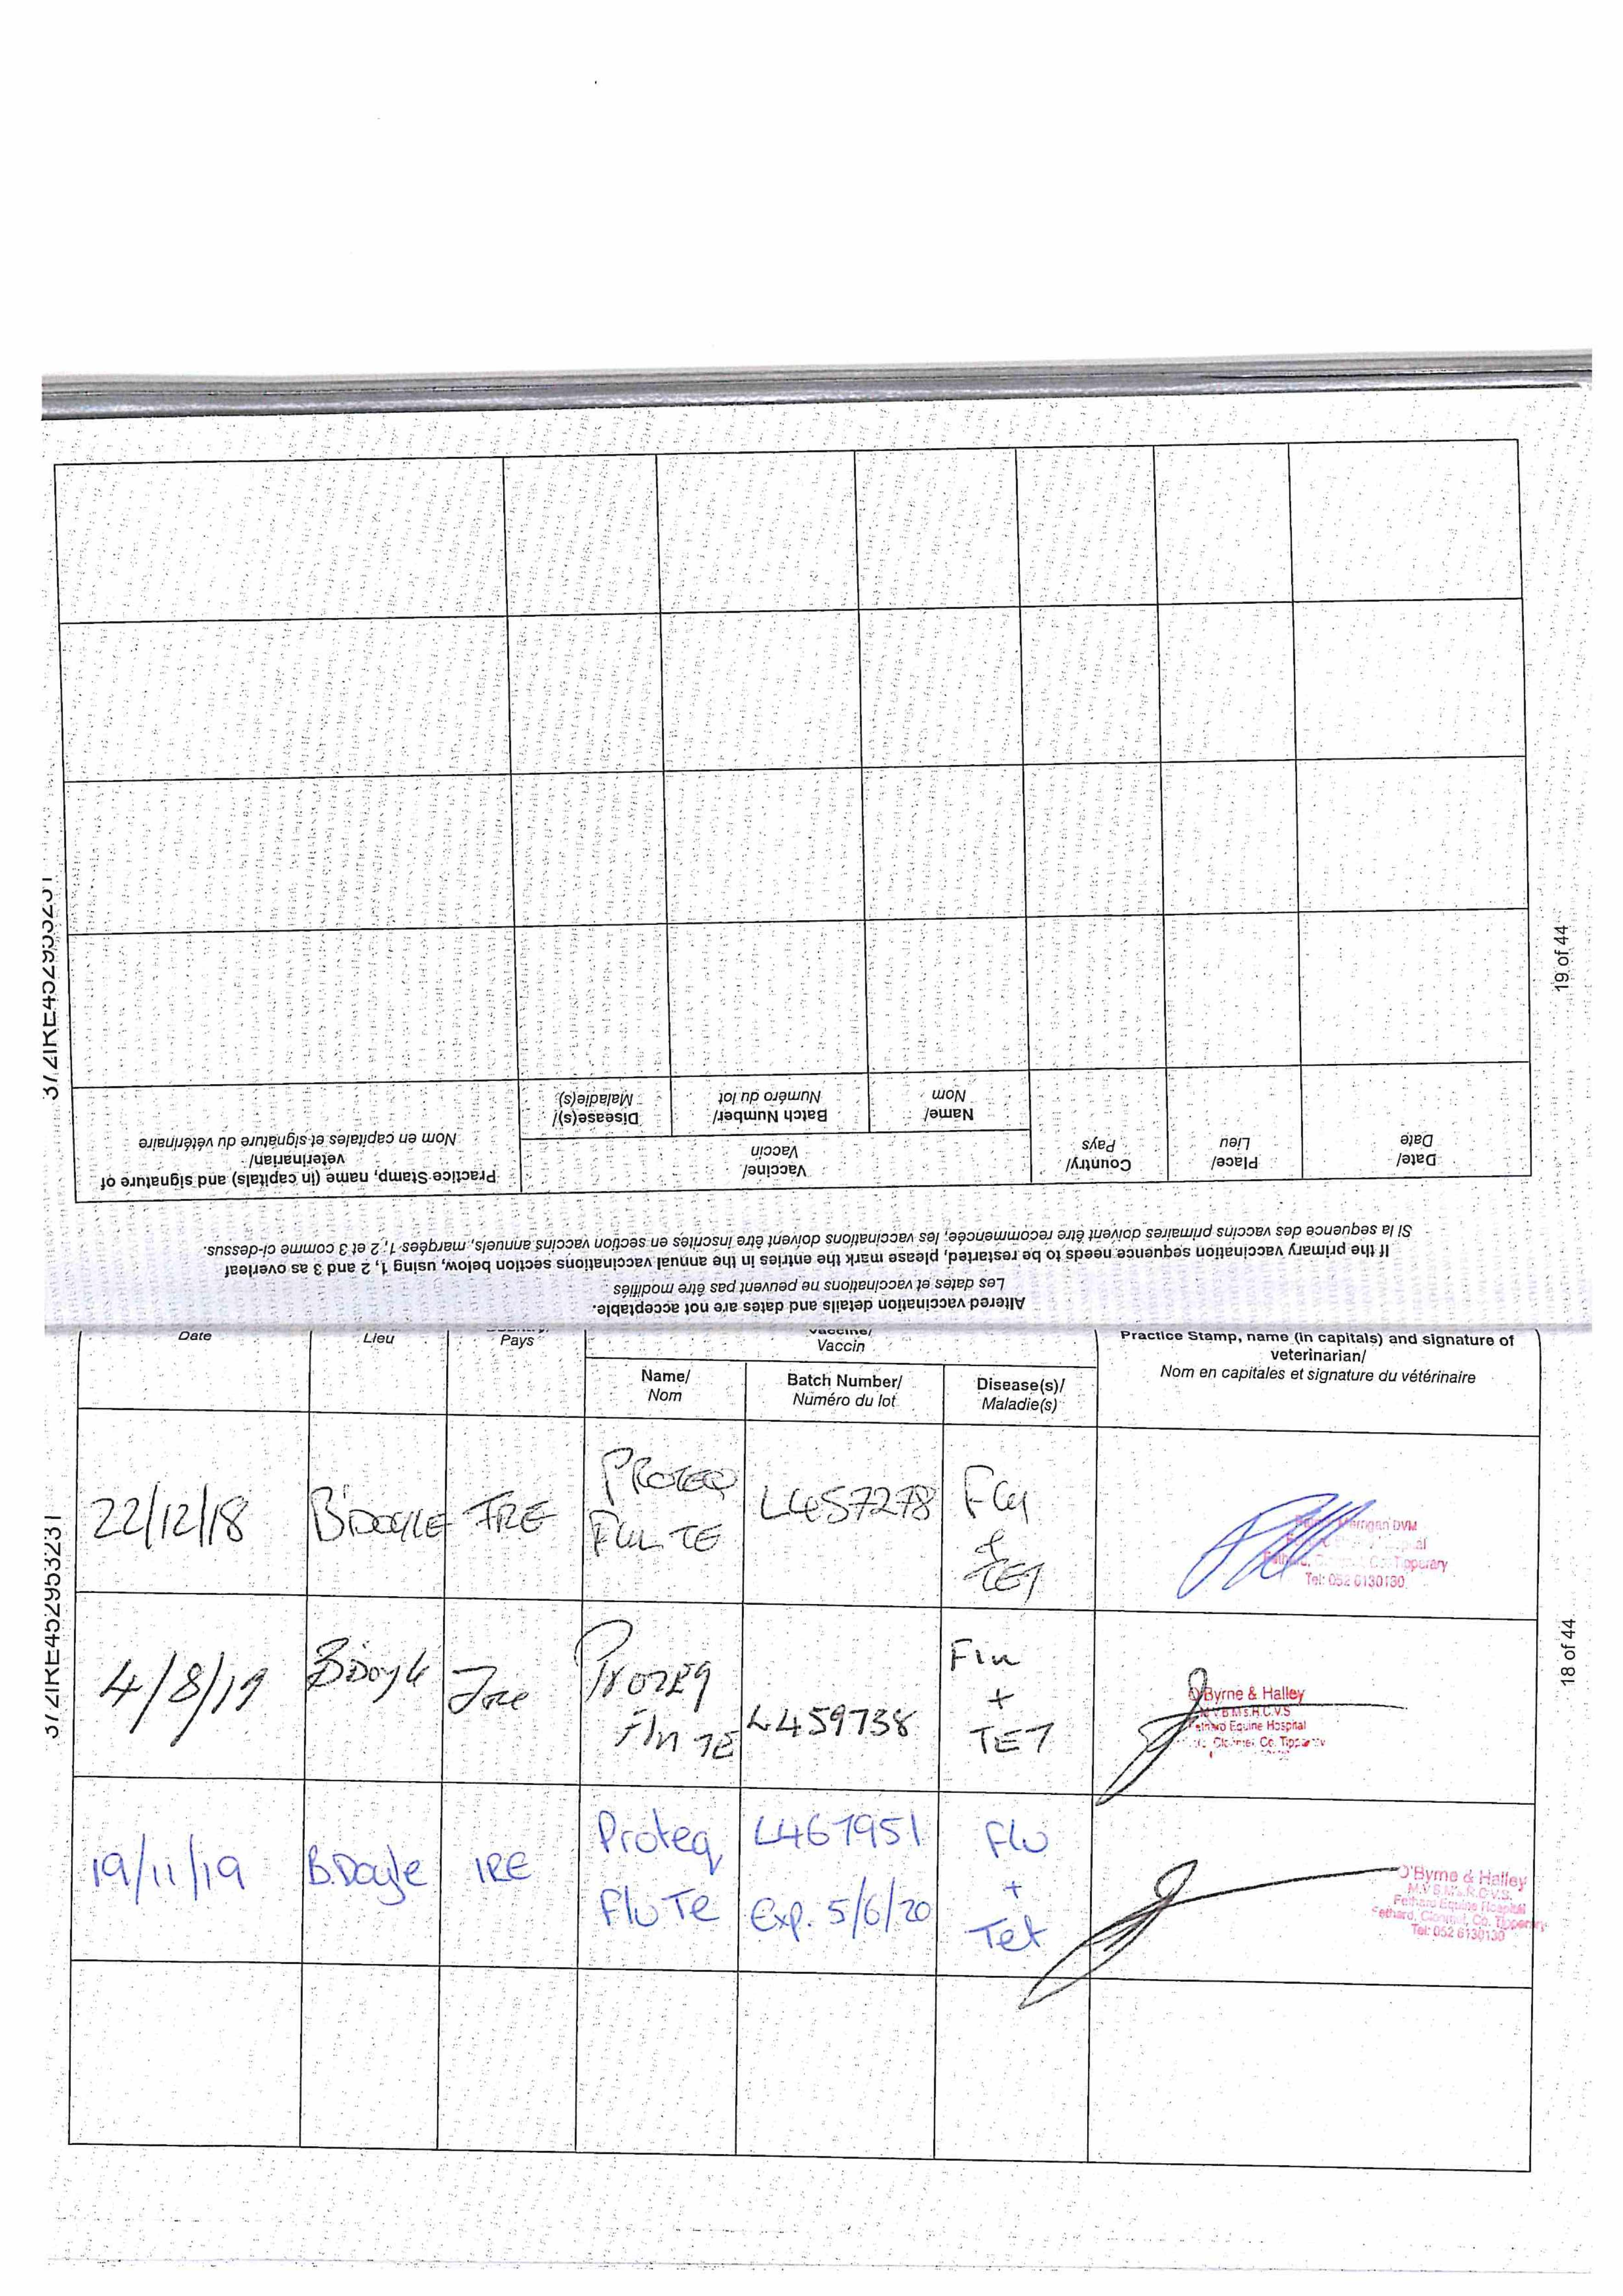 Altered vaccination details and dates are not acceptable.
Les dates et vaccinations ne peuvent pas être modifiés
If the primary vaccination sequence needs to be restarted, please mark the entries in the annual vaccinations section below, using 1, 2 and 3 as overleaf
Si la sequence des vaccins primaires doivent être recommencée, les vaccinations doivent être inscrites en section vaccins annuels, margées 1, 2 et 3 comme ci-dessus.
Date/ Place/ Country/ Vaccine/ Practice Stamp, name (in capitals) and signature of
Date Lieu Pays Vaccin veterinarian/
Name/ Batch Number/ Disease(s)/ Nom en capitales et signature du vétérinaire
Nom Numéro du lot Maladie(s)
19 of 44
Date Lieu Pays Vaccine/ Practice Stamp, name (in capitals) and signature of
Vaccin veterinarian/
Name/ Batch Number/ Disease(s)/ Nom en capitales et signature du vétérinaire
Nom Numéro du lot Maladie(s)
22/12/18 B'DOYLE IRE PROTEQ FLU TE L457278 Flu & TET
DVM
Tipperary
Tel: 052 6130130
4/8/19 B'Doyle Ire Proteq Flu TE L459738 Flu + TET
O'Byrne & Halley
M.V.B.M's.R.C.V.S
Fethard Equine Hospital
Clonmel, Co. Tipperary
19/11/19 B.Doyle IRE Proteq Flu Te L461951 Exp. 5/6/20 Flu + Tet
O'Byrne & Halley
M.V.B.M's.R.C.V.S.
Fethard Equine Hospital
Fethard, Clonmel, Co. Tipperary
Tel: 052 6130130
372IRE452953231
18 of 44